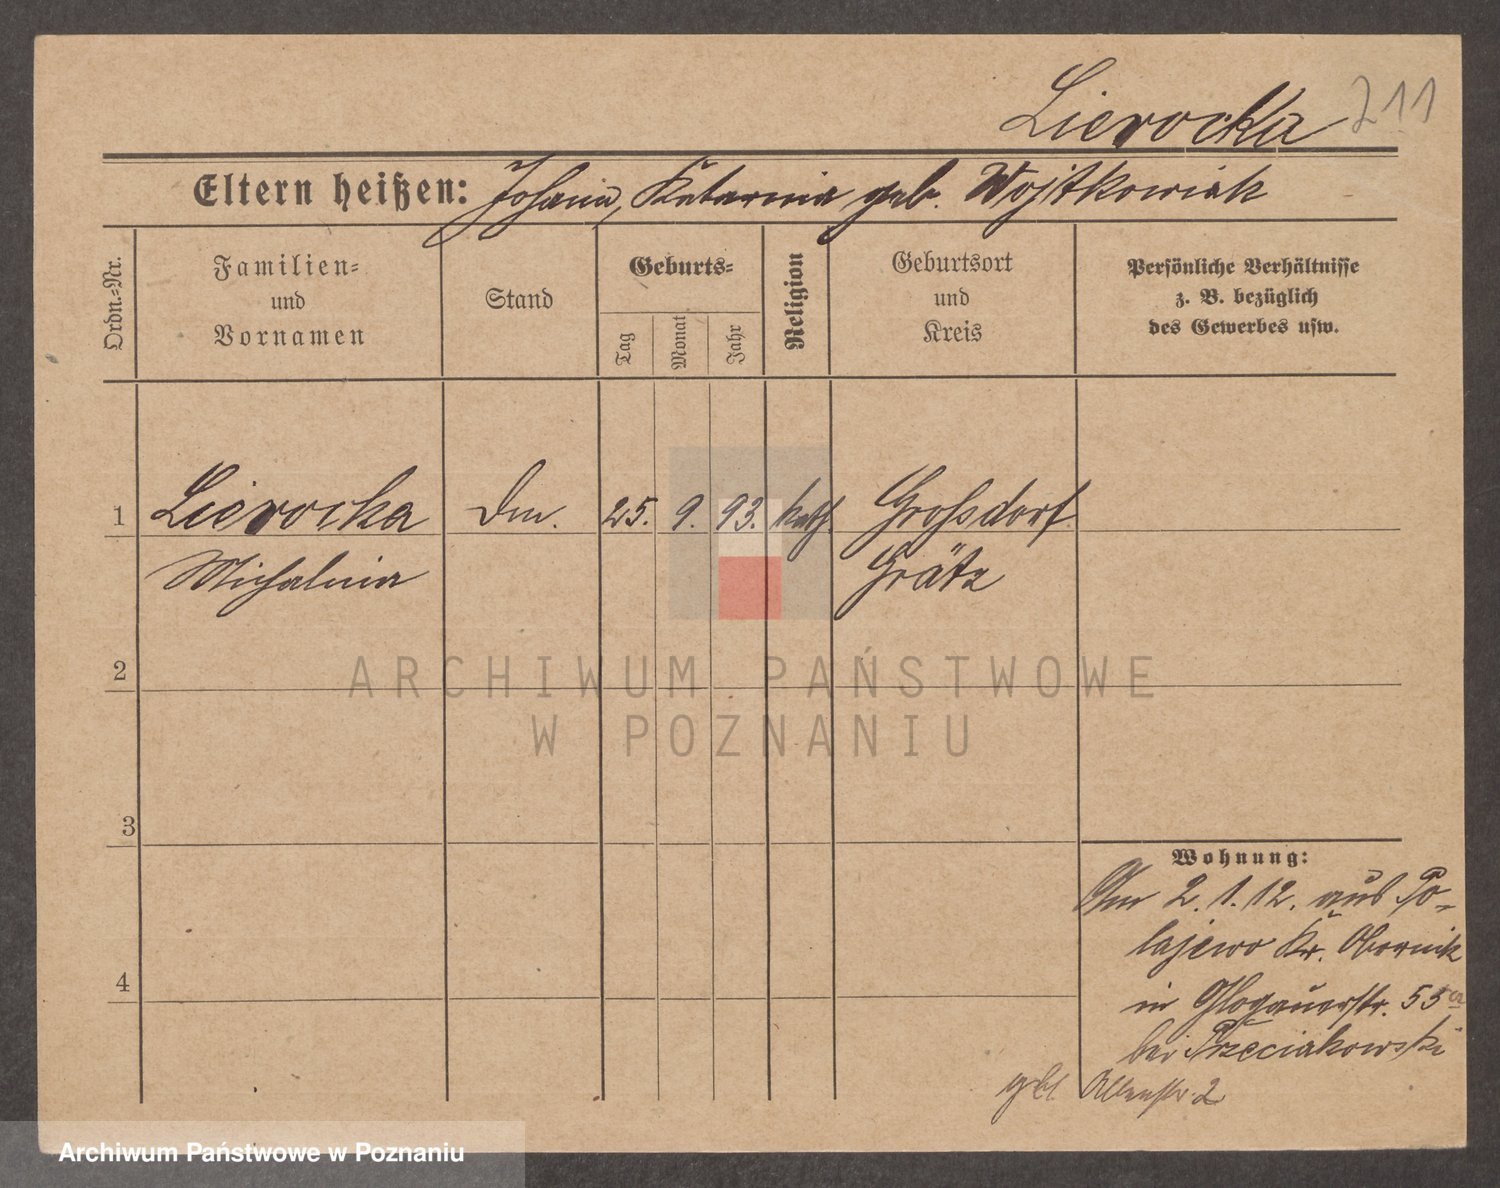 Lierocka 211
Eltern heißen: Johann, Katarina geb. Wojtkowiak
Ordn.-Nr.
Familien-
und
Vornamen
Stand
Geburts-
Tag
Monat
Jahr
Religion
Geburtsort
und
Kreis
Persönliche Verhältnisse
z. B. bezüglich
des Gewerbes usw.
1 Lierocka Dm. 25. 9. 93. kath. Grohsdorf
Michalina Grätz
2
ARCHIWUM PAŃSTWOWE
W POZNANIU
3
Wohnung:
Am 2.1.12. aus Po-
lajewo Kr. Obornik
4
in Glogauerstr. 53a
bei Trzeciakowski
2
Archiwum Państwowe w Poznaniu